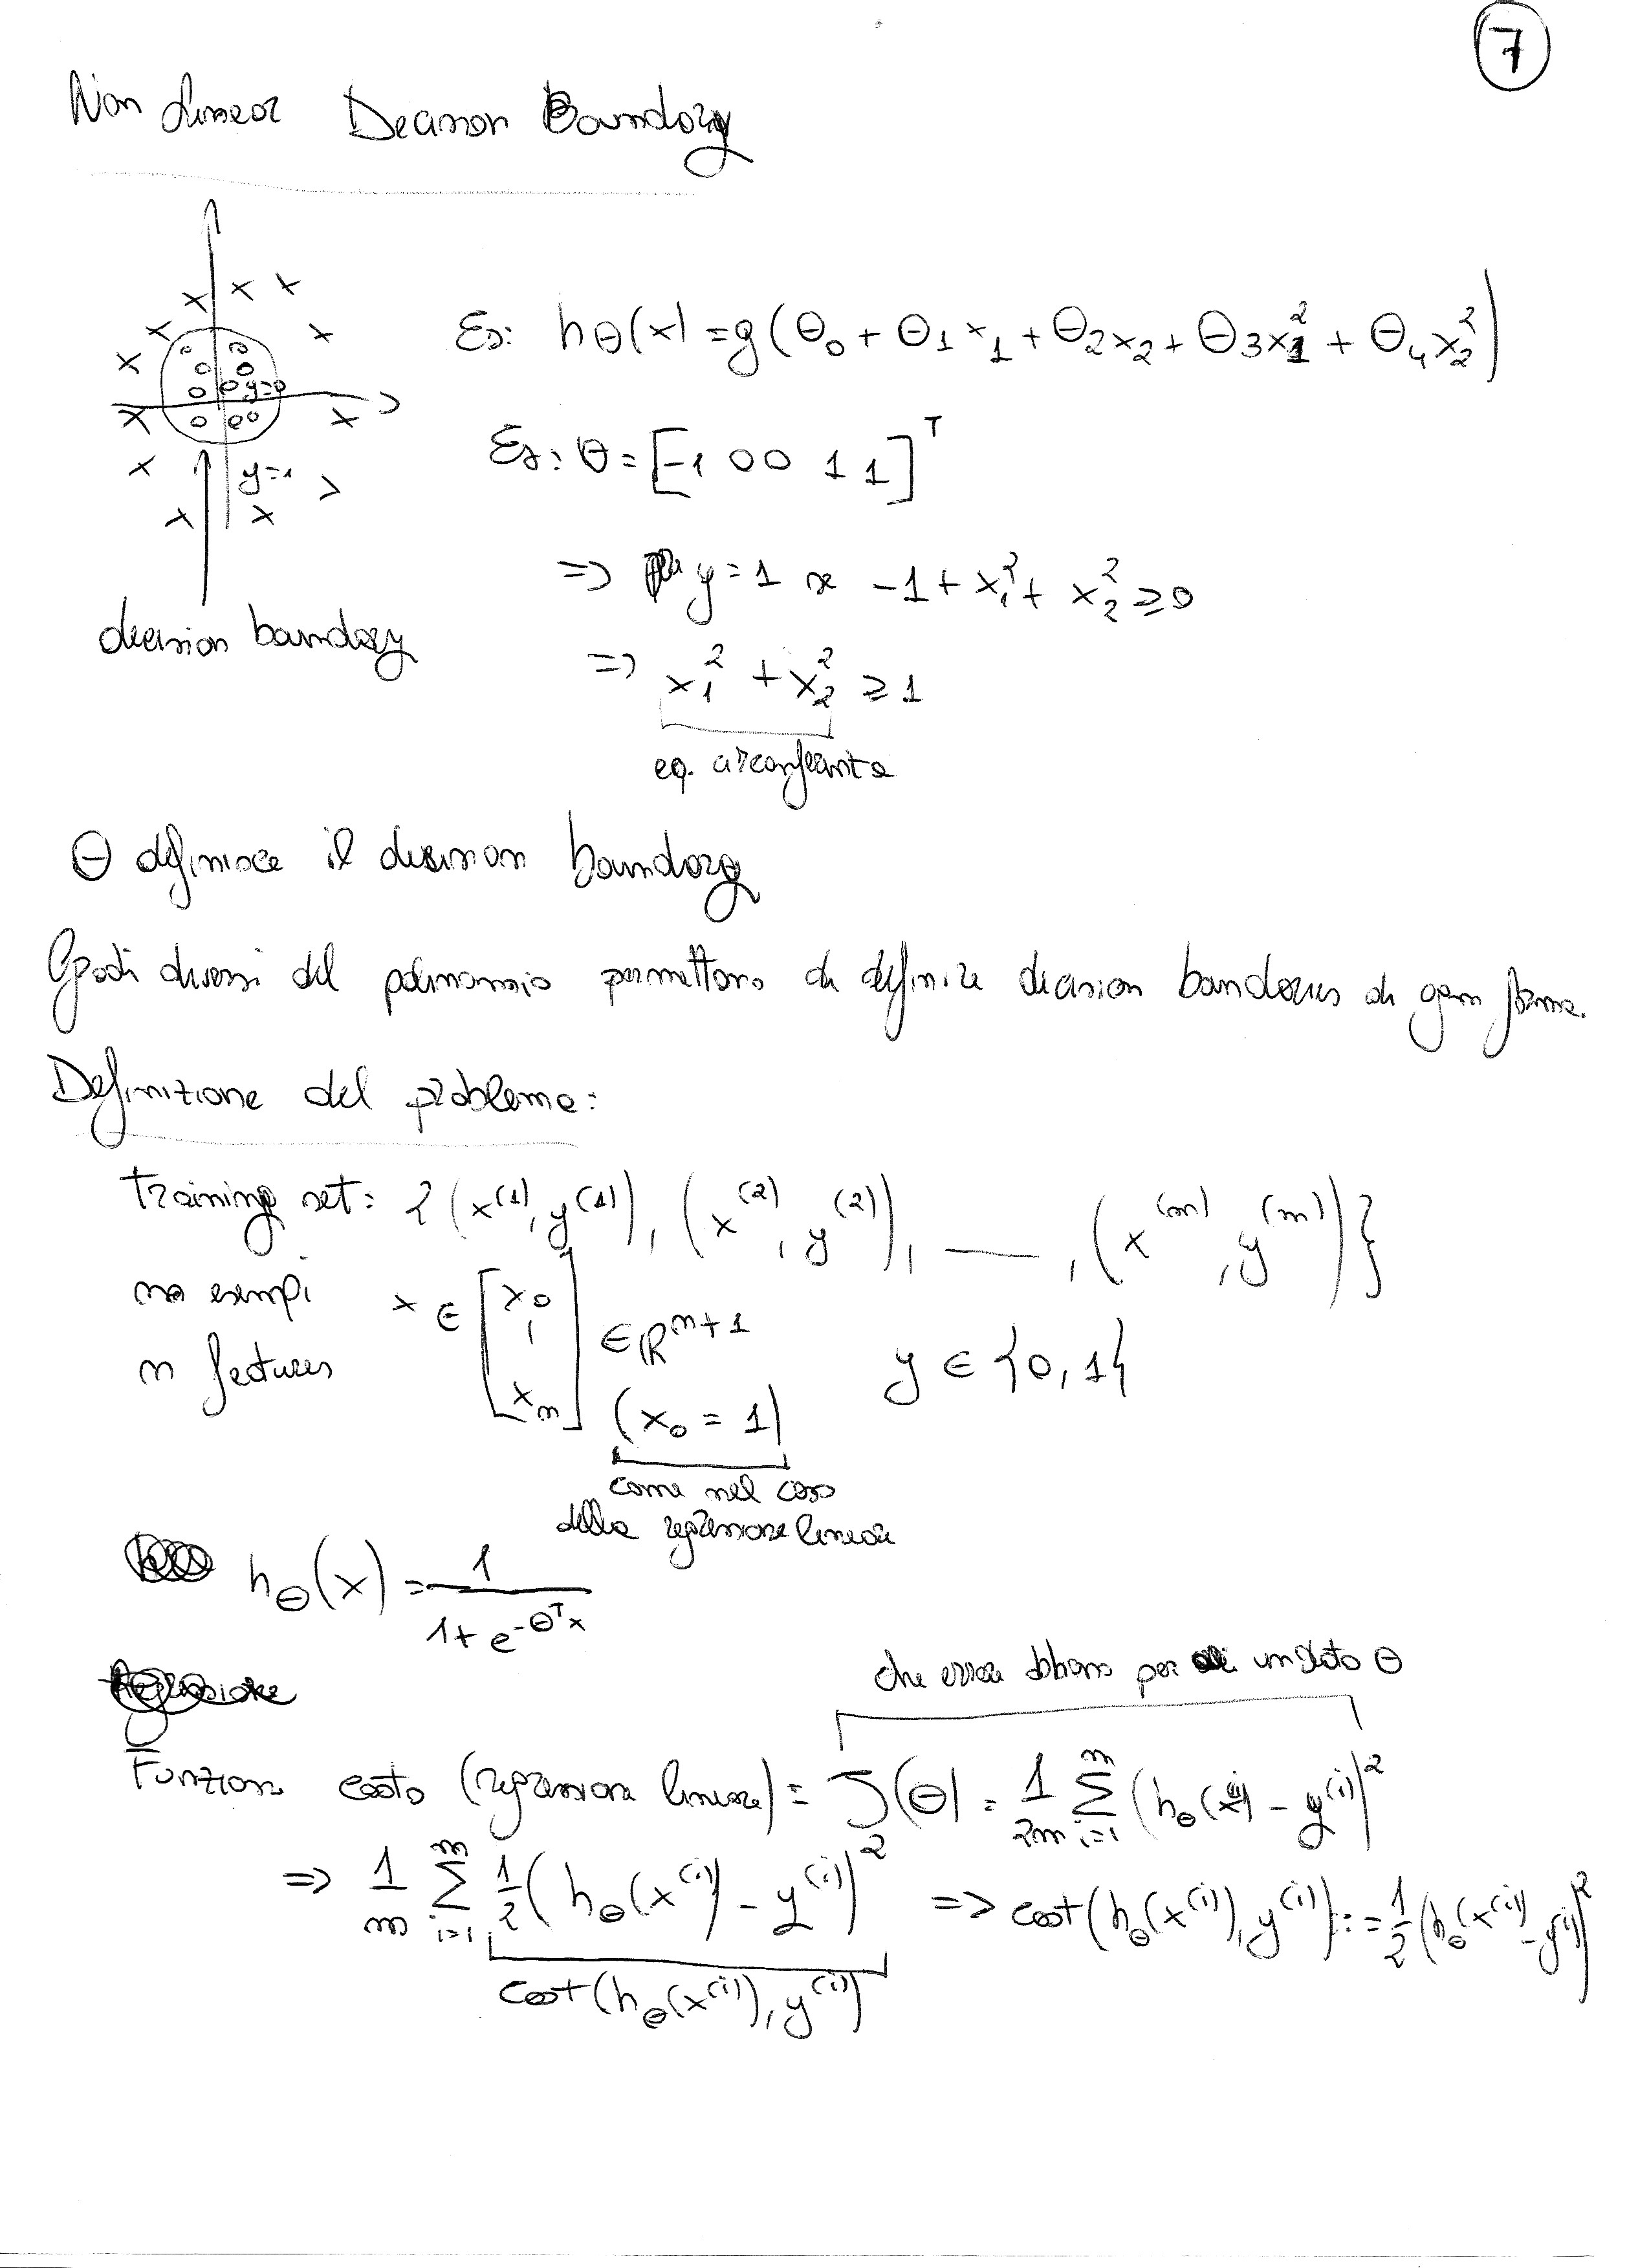 7
Non Linear Decision Boundary
Es: hθ(x) = g(θ0 + θ1 x1 + θ2 x2 + θ3 x1² + θ4 x2²)
y=0
Es: θ = [-1 0 0 1 1]ᵀ
y=1
⇒ y = 1 se -1 + x1² + x2² ≥ 0
decision boundary
⇒ x1² + x2² ≥ 1
eq. circonferenza
θ definisce il decision boundary
Gradi diversi del polinomio permettono di definire decision boundaries di ogni forma.
Definizione del problema:
Training set: {(x⁽¹⁾, y⁽¹⁾), (x⁽²⁾, y⁽²⁾), —, (x⁽ᵐ⁾, y⁽ᵐ⁾)}
m esempi
n features
x ∈ [x0 ⋮ xn] ∈ ℝⁿ⁺¹
y ∈ {0, 1}
(x0 = 1)
come nel caso
della regressione lineare
hθ(x) = 1 / (1 + e^(-θᵀx))
che errore abbiamo per un dato θ
Funzione costo (regressione lineare) = J(θ) = 1/2m Σ i=1 m (hθ(x⁽ⁱ⁾) - y⁽ⁱ⁾)²
⇒ 1/m Σ i=1 m 1/2 (hθ(x⁽ⁱ⁾) - y⁽ⁱ⁾)² ⇒ cost(hθ(x⁽ⁱ⁾), y⁽ⁱ⁾) ::= 1/2 (hθ(x⁽ⁱ⁾) - y⁽ⁱ⁾)²
cost(hθ(x⁽ⁱ⁾), y⁽ⁱ⁾)